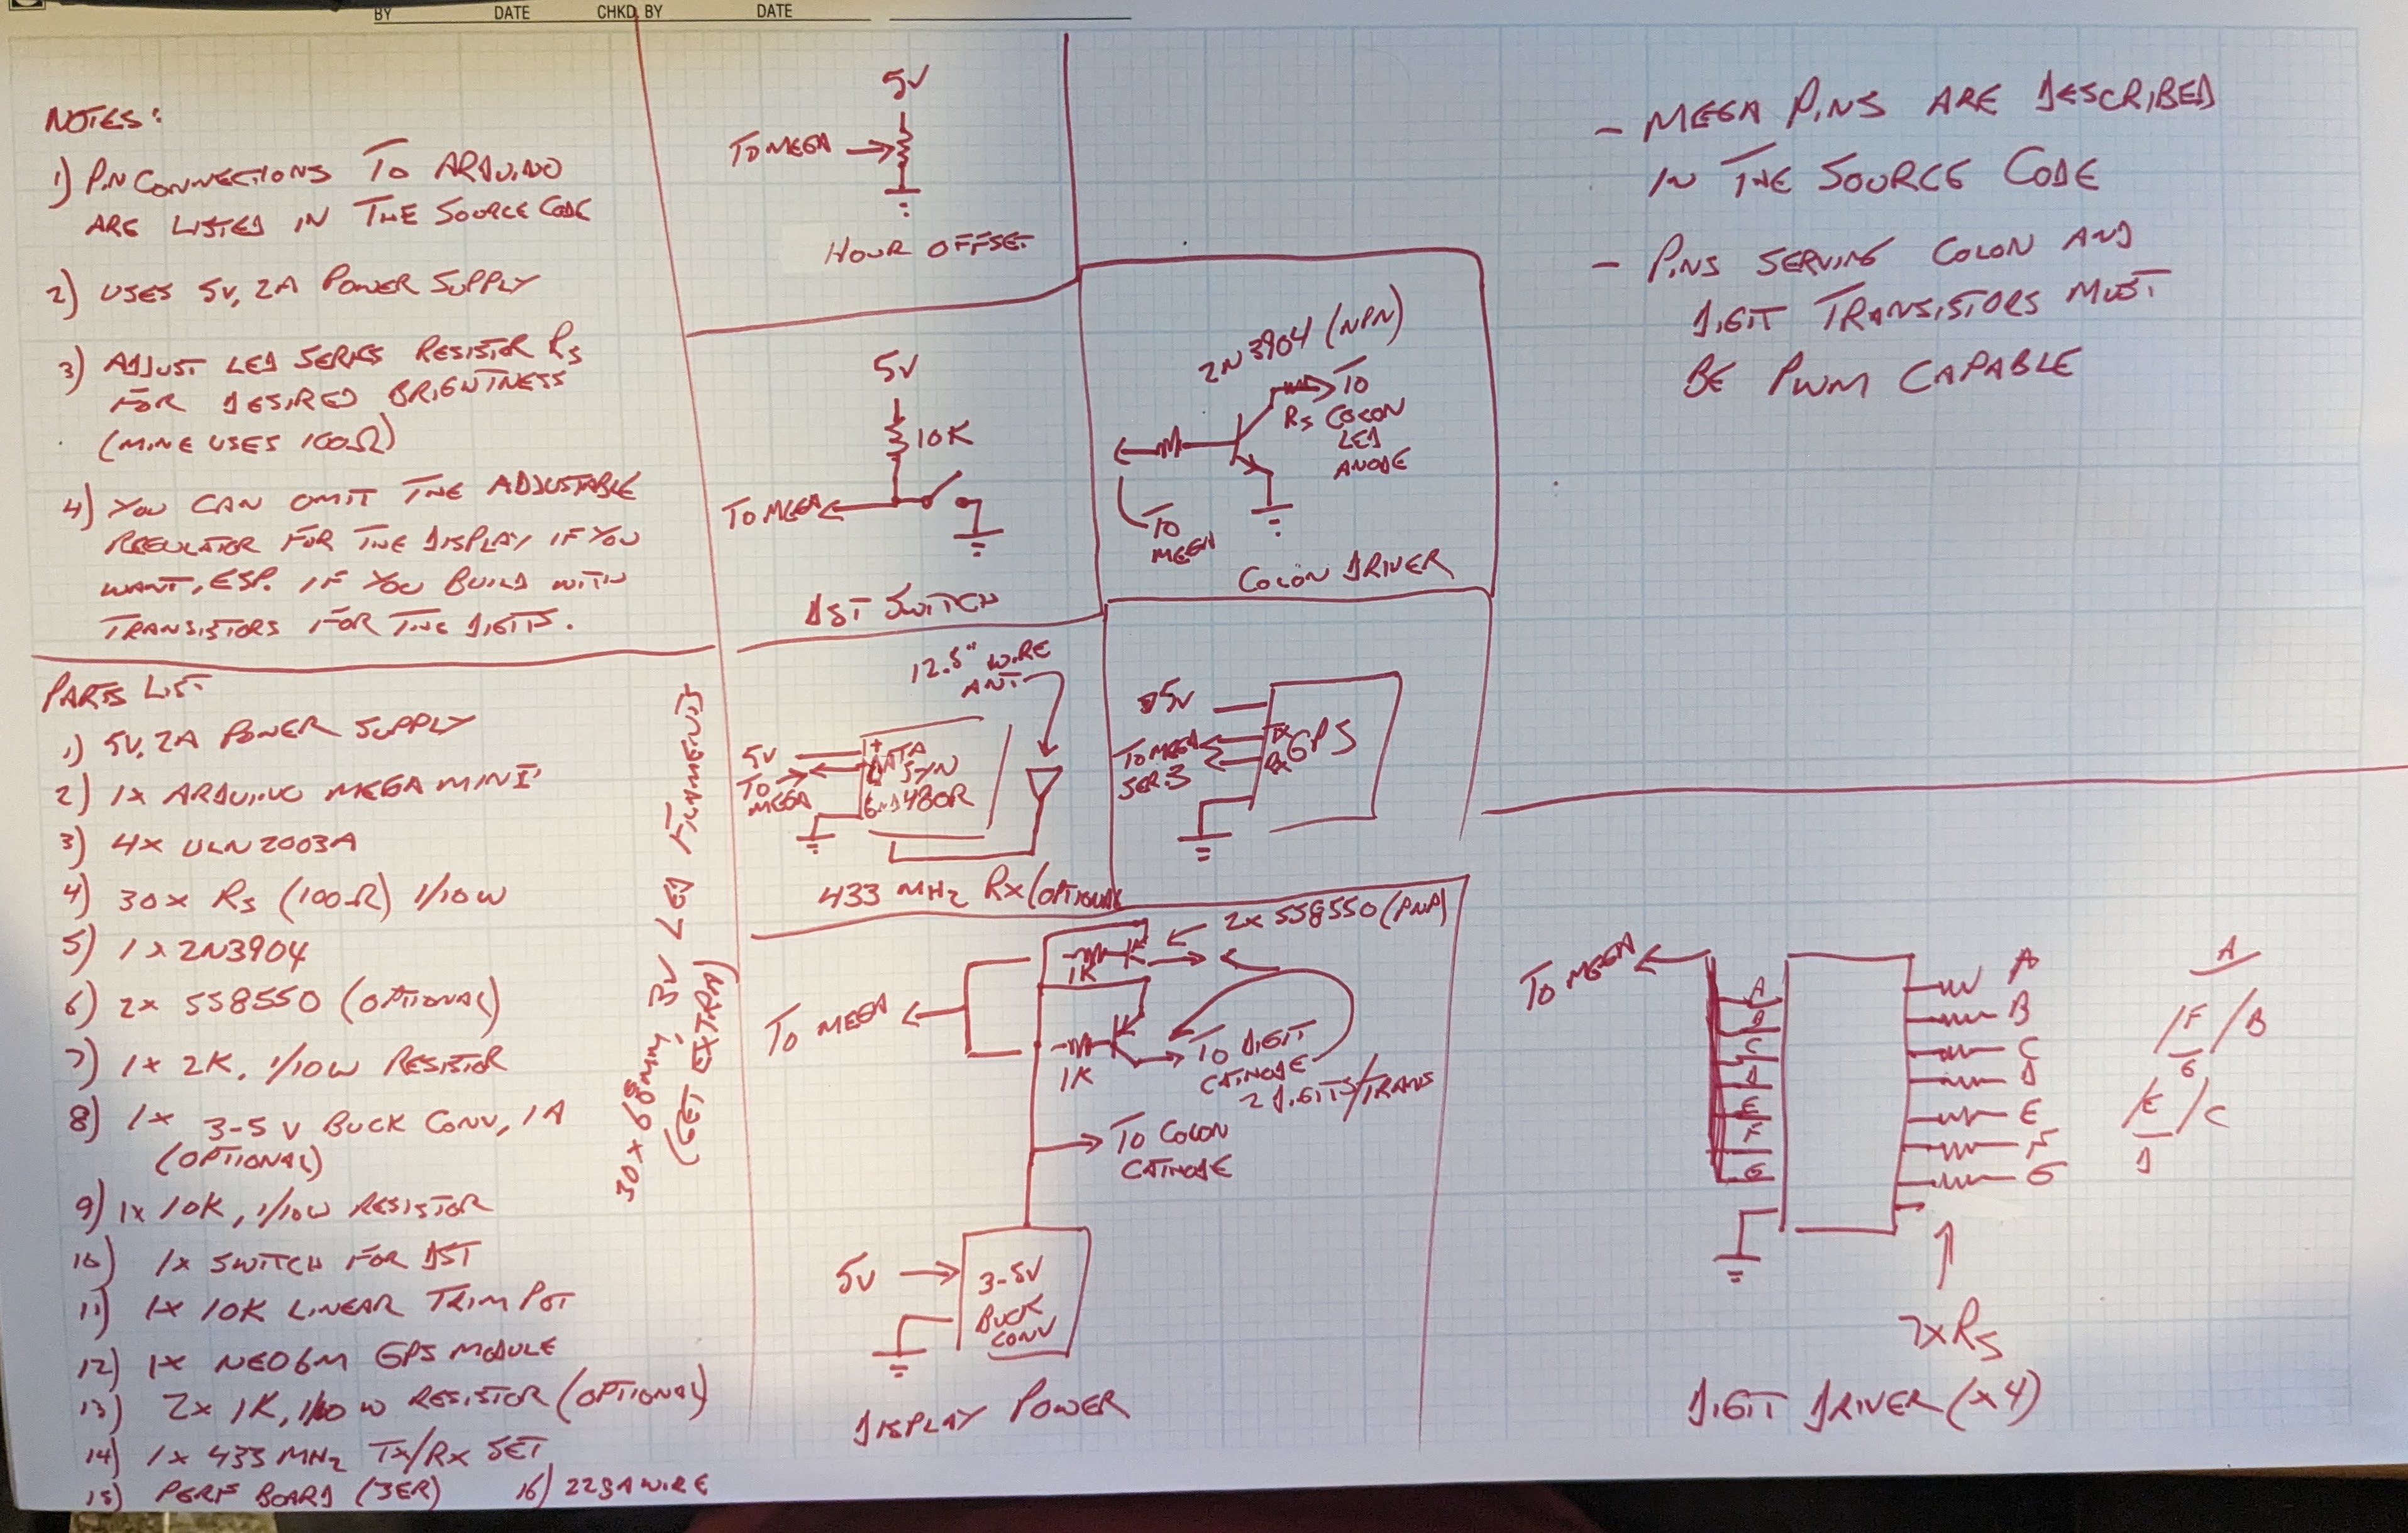 BY DATE CHKD. BY DATE
NOTES:
1) PIN CONNECTIONS TO ARDUINO
ARE LISTED IN THE SOURCE CODE
2) USES 5V, 2A POWER SUPPLY
3) ADJUST LED SERIES RESISTOR RS
FOR DESIRED BRIGHTNESS
(MINE USES 100Ω)
4) YOU CAN OMIT THE ADJUSTABLE
REGULATOR FOR THE DISPLAY IF YOU
WANT, ESP. IF YOU BUILD WITH
TRANSISTORS FOR THE DIGITS.
PARTS LIST
1) 5V, 2A POWER SUPPLY
2) 1x ARDUINO MEGA MINI
3) 4x ULN2003A
4) 30x RS (100Ω) 1/10W
5) 1x 2N3904
6) 2x SS8550 (OPTIONAL)
7) 1x 2K, 1/10W RESISTOR
8) 1x 3-5V BUCK CONV, 1A
(OPTIONAL)
9) 1x 10K, 1/10W RESISTOR
10) 1x SWITCH FOR DST
11) 1x 10K LINEAR TRIM POT
12) 1x NEO6M GPS MODULE
13) 2x 1K, 1/10W RESISTOR (OPTIONAL)
14) 1x 433 MHZ TX/RX SET
15) PERF BOARD (3ER) 16) 22GA WIRE
30x 68mm, 3V LED FILAMENTS
(GET EXTRA)
5V
TO MEGA
HOUR OFFSET
5V
10K
TO MEGA
DST SWITCH
2N3904 (NPN)
TO
RS COLON
LED
ANODE
TO
MEGA
COLON DRIVER
12.5" WIRE
ANT.
5V
TO
MEGA
+
DATA
SYN
GND 480R
433 MHZ RX (OPTIONAL)
5V
TO MEGA
SER.3
TX
RX
GPS
2x SS8550 (PNP)
1K
TO MEGA
1K
TO DIGIT
CATHODE
2 DIGITS/TRANS
TO COLON
CATHODE
5V
3-5V
BUCK
CONV
DISPLAY POWER
- MEGA PINS ARE DESCRIBED
IN THE SOURCE CODE
- PINS SERVING COLON AND
DIGIT TRANSISTORS MUST
BE PWM CAPABLE
TO MEGA
A
B
C
D
E
F
G
A
B
C
D
E
F
G
A
F B
G
E C
D
7xRS
DIGIT DRIVER (x4)